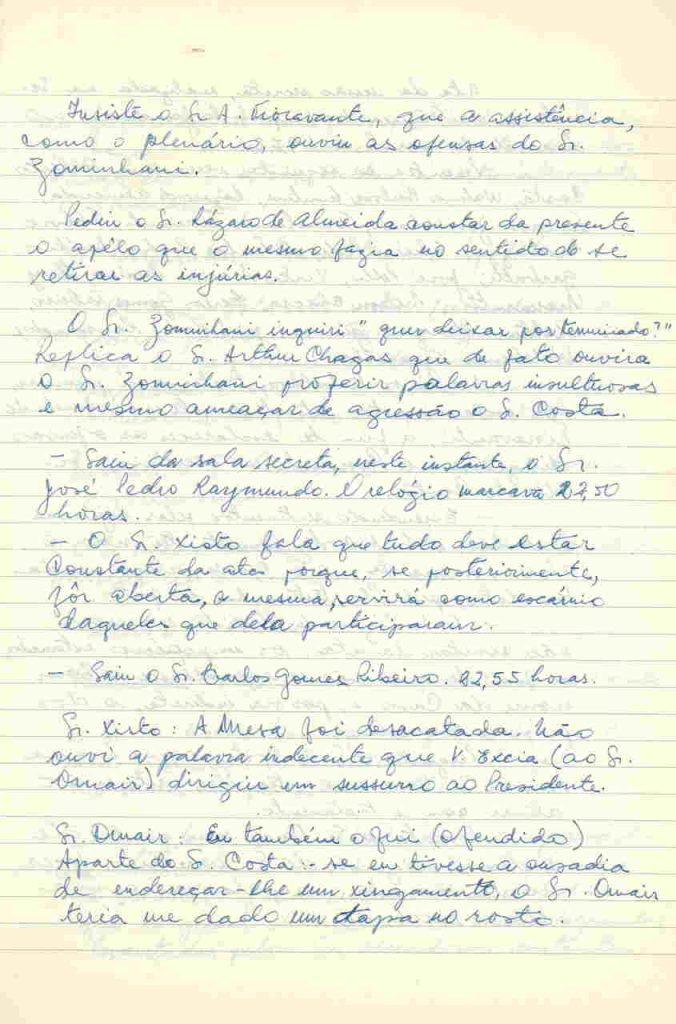 Insiste o Sr. A. Fioravante, que a assistência,
como o plenário, ouviu as ofensas do Sr.
Zominhani.
Pediu o Sr. Lázaro de Almeida constar da presente
o apêlo que o mesmo fazia no sentido de se
retirar as injúrias.
O Sr. Zominhani inquiri "quer deixar por terminado?"
Replica o S. Arthur Chagas que de fato ouvira
o Sr. Zominhani proferir palavras insultuosas
e mesmo ameaçar de agressão o S. Costa.
- Saiu da sala secreta, neste instante, o Sr.
José Pedro Raymundo. O relógio marcava 22,50
horas.
- O Sr. Xisto fala que tudo deve estar
constante da ata porque, se posteriormente,
fôr aberta, a mesma, servirá como escárnio
daqueles que dela participaram.
- Saiu o Sr. Carlos Gomes Ribeiro. 22,55 horas.
Sr. Xisto: A Mesa foi desacatada. Não
ouvi a palavra indecente que V. Excia (ao Sr.
Omair) dirigiu em sussurro ao Presidente.
Sr. Omair: Eu também o fui (ofendido)
Aparte do S. Costa: - se eu tivesse a ousadia
de endereçar-lhe um xingamento, o Sr. Omair
teria me dado um tapa no rosto.